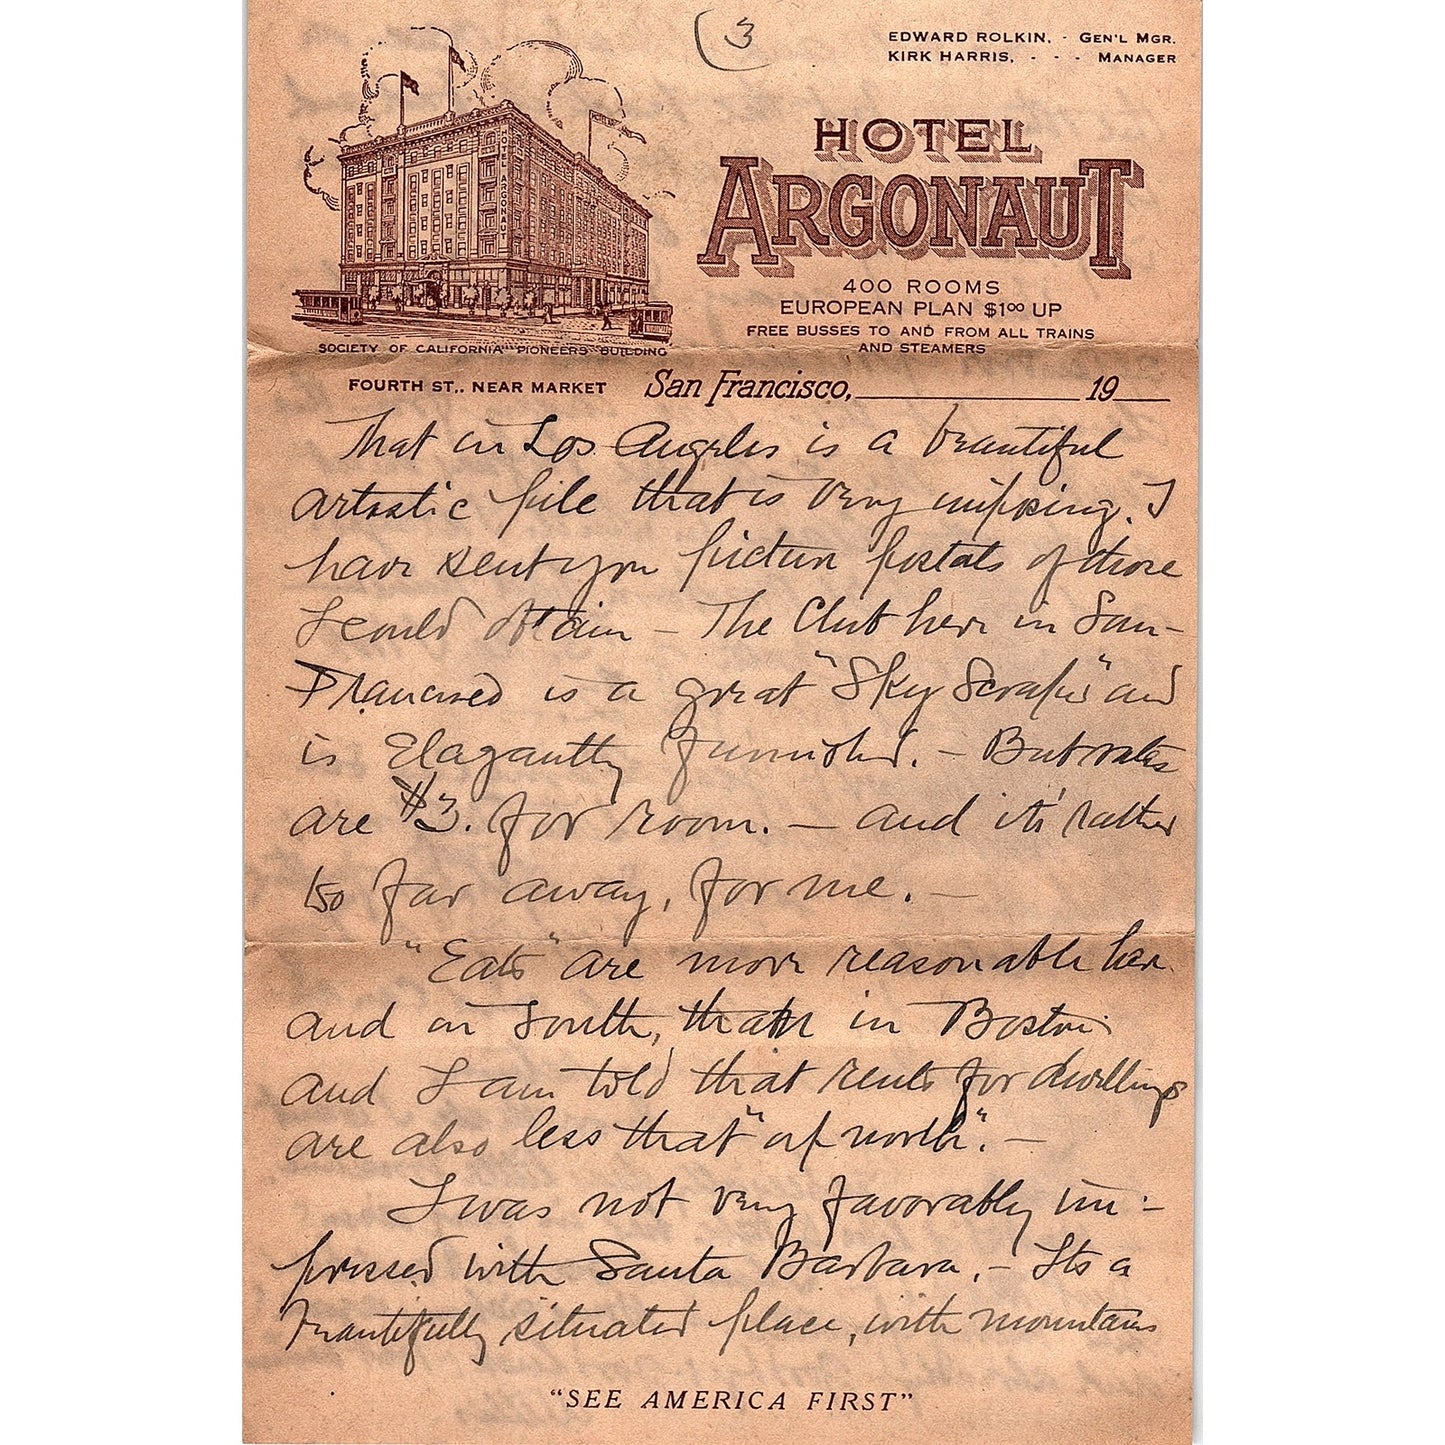 3
EDWARD ROLKIN, - GEN'L MGR.
KIRK HARRIS, - - - MANAGER
HOTEL ARGONAUT
HOTEL
ARGONAUT
400 ROOMS
EUROPEAN PLAN $1.00 UP
FREE BUSSES TO AND FROM ALL TRAINS
AND STEAMERS
SOCIETY OF CALIFORNIA PIONEERS BUILDING
FOURTH ST., NEAR MARKET San Francisco, 19
That in Los Angeles is a beautiful
artistic pile that is very imposing. I
have sent you picture postals of those
I could obtain – The Club here in San-
Francisco is a great "Sky Scraper" and
is Elegantly furnished. – But rates
are $3. for room. – and its' rather
too far away, for me. –
"Eats" are more reasonable here
and in South, than in Boston
and I am told that rents for dwellings
are also less that "up north". –
I was not very favorably im-
pressed with Santa Barbara. – Its a
beautifully situated place, with mountains
"SEE AMERICA FIRST"